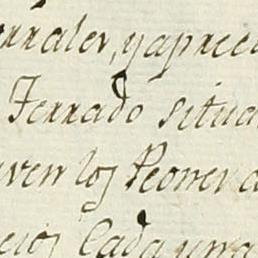 rrales, y aprecia
Ferrado situa
uven los Peones a
cios Cada una